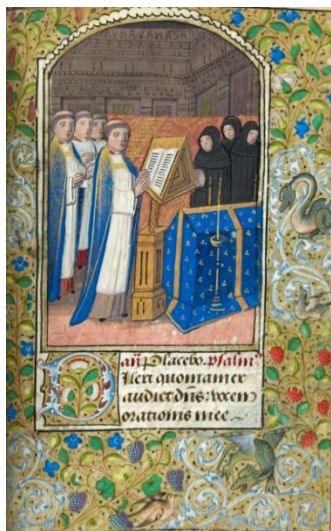 añ Placebo. psalm⁹
Dilexi quoniam ex
audiet dn̄s: vocem
orationis mee.